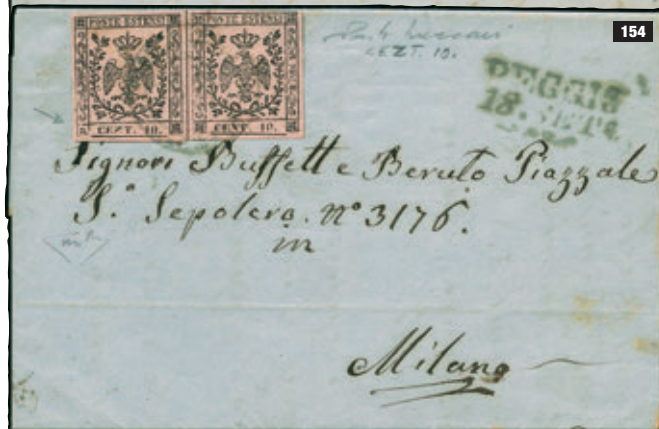 154
POSTE ESTENSI POSTE ESTENSI
CEZT. 10.
CEZT. 10. CENT. 10.
REGGIO
18. SETT.
Signori Buffett e Beruto Piazzale
S.ª Sepolcro. nº 3176.
in
Milano